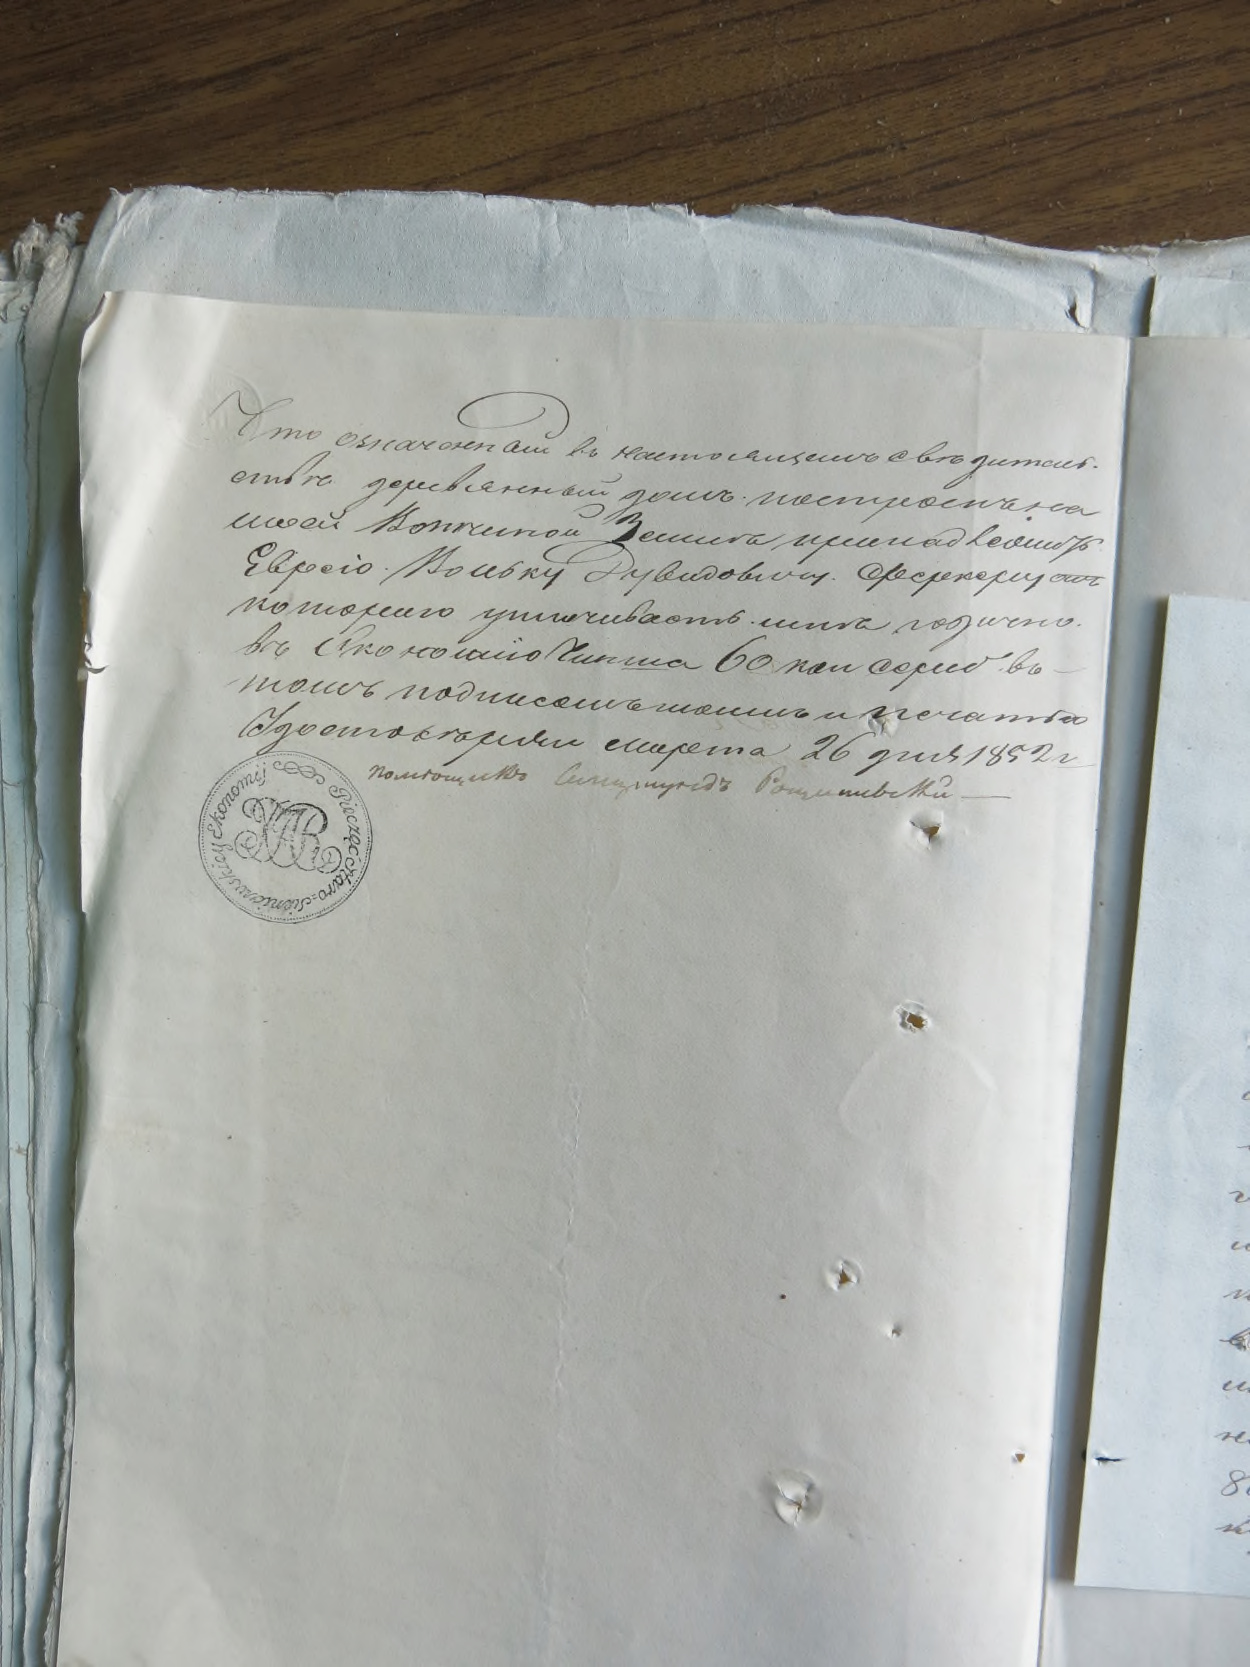 Что означенный въ настоящемъ свѣдѣтель-
ствѣ деревянный домъ построенъ на
моей Вотчиной Землѣ принадлежитъ
Еврею Вольку Дувидовичу
которого уплачиваетъ мнѣ годично
въ Экономію Чинша 60 коп сереб въ
томъ подписомъ моимъ и печатью
Удостовѣряю Марта 26 дня 1852 г
помѣщикъ
Pieczęć Staro= Ekonomij